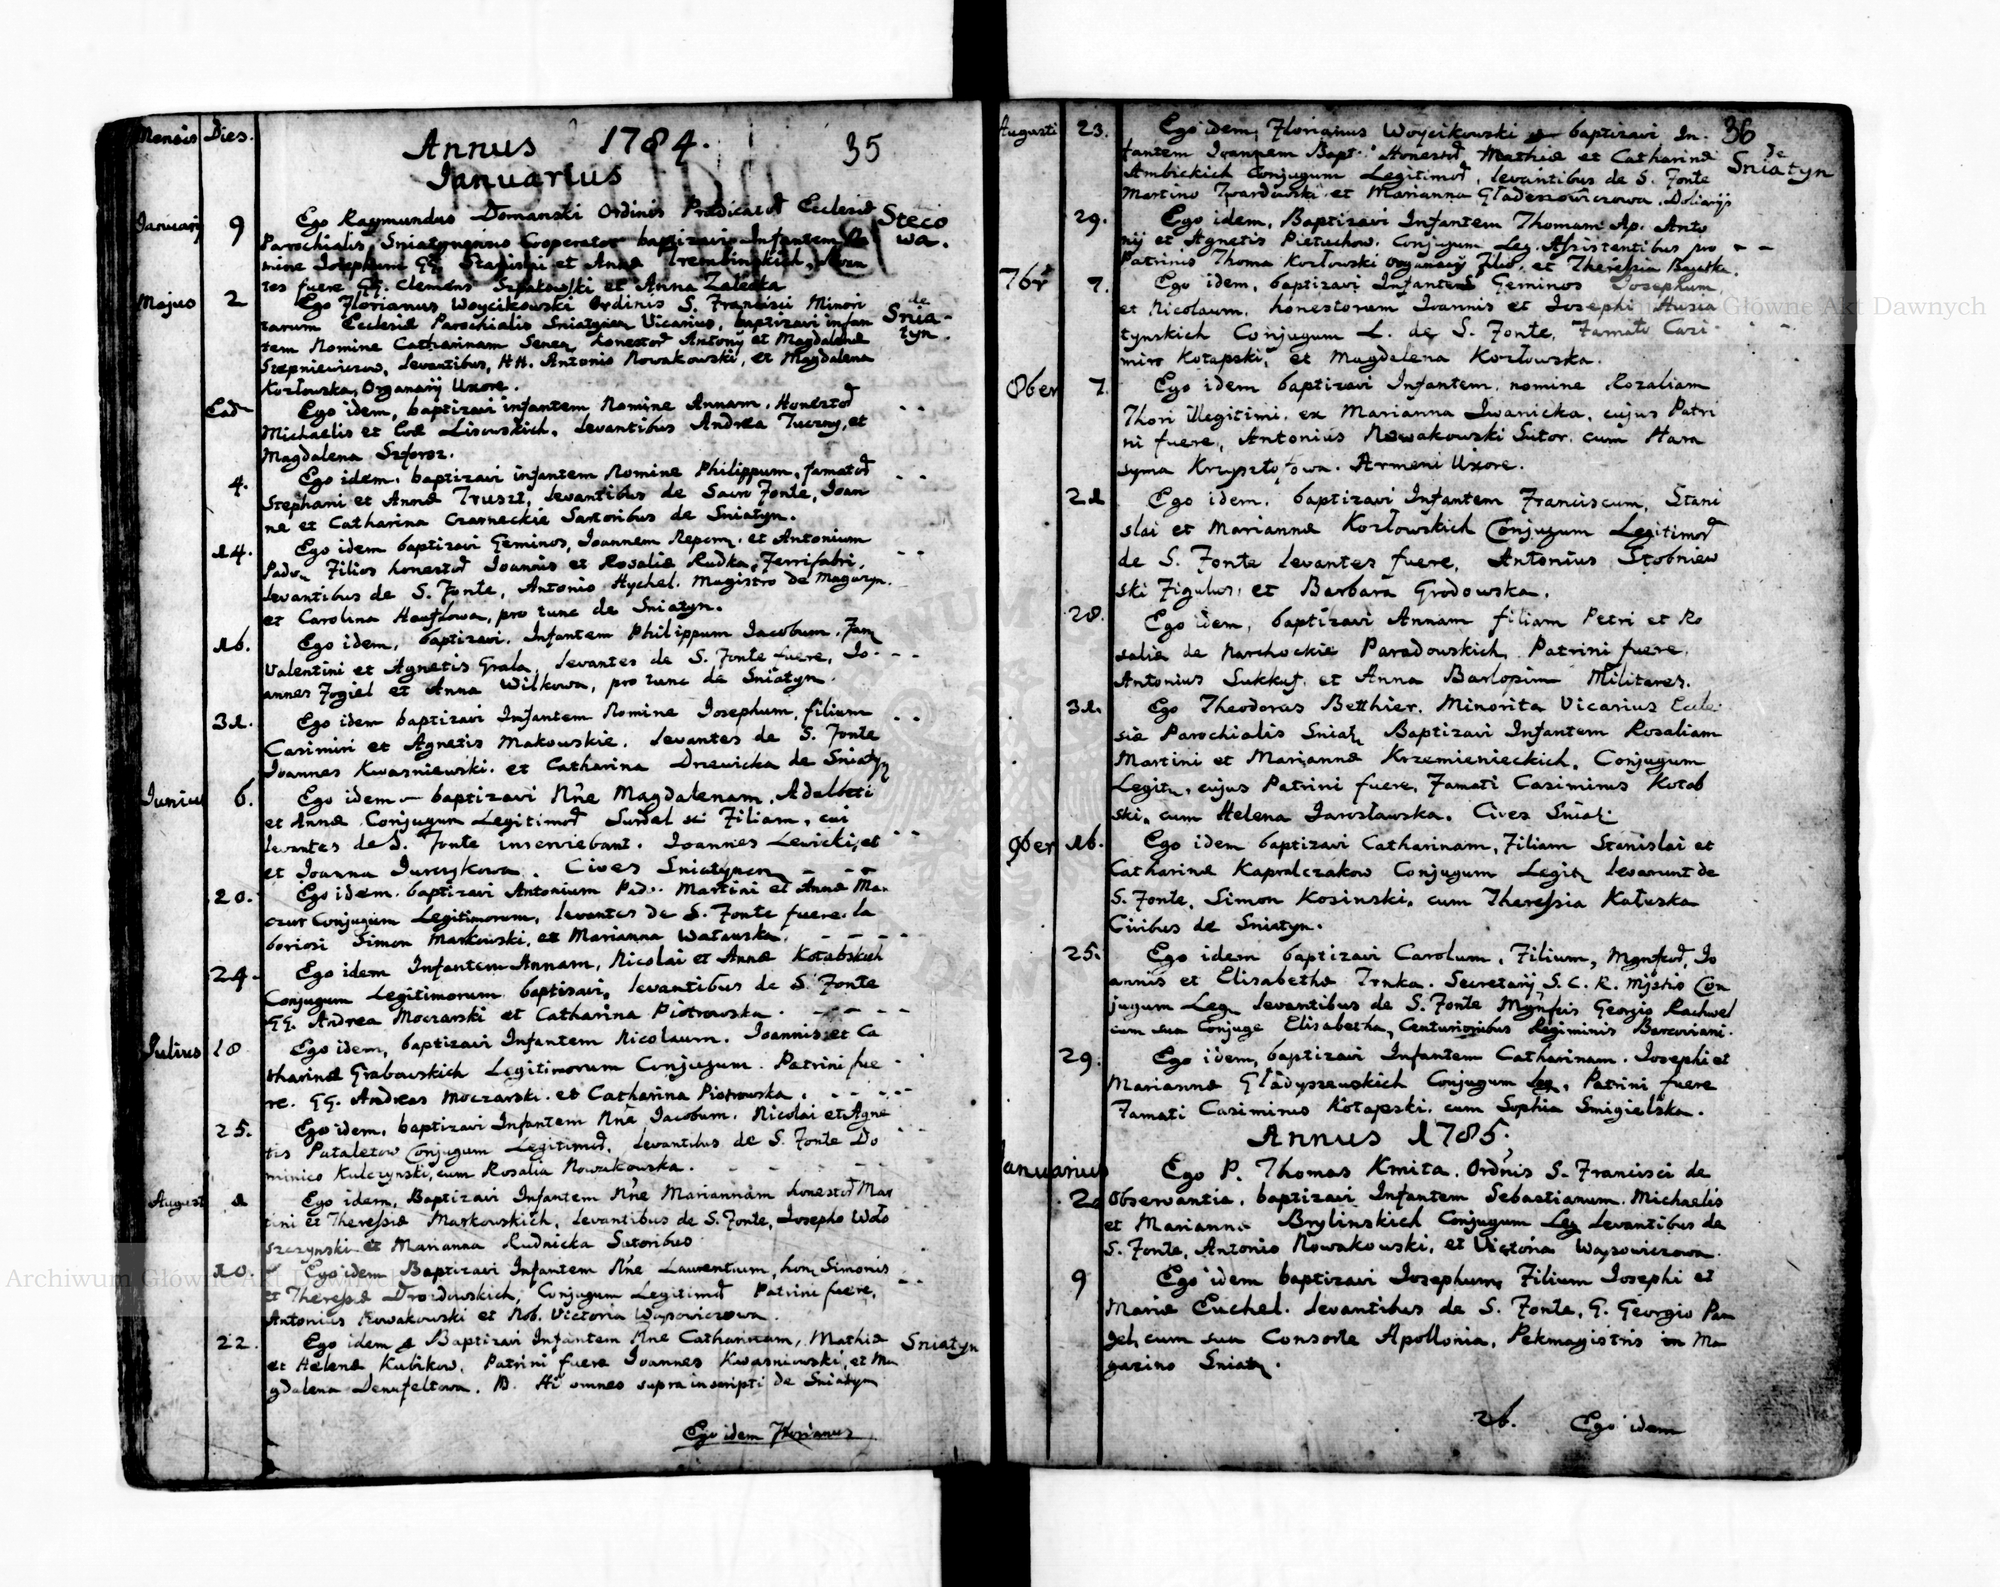 Mensis Dies.
Annus 1784. 35
Januarius
Januarij 9 Ego Raymundus Domanski Ordinis Prædicatoꝝ Ecclesiæ Steco
Parochialis Sniatynensis Cooperator baptizavi Infantem No wa.
mine Josephum GG. Stanislai et Annæ Trembinskich, Levan
tes fuere GG. Clemens Szpakowski et Anna Zaleska
Majus 2 Ego Florianus Woycikowski Ordinis S. Francisci Minori de
tarum Ecclesiæ Parochialis Sniatynen Vicarius, baptizavi infan Snia-
tem Nomine Catharinam Senen, honestoꝝ Antonij et Magdalenæ tyn.
Stepniewiczow, Levantibus, HH. Antonio Nowakowski, et Magdalena
Kozłowska, Organarij Uxore.
Ead Ego idem, baptizavi infantem Nomine Annam, Honestoꝝ
Michaelis et Evæ Lisowskich, Levantibus Andrea Tuczny, et
Magdalena
4. Ego idem, baptizavi infantem Nomine Philippum, famatoꝝ
Stephani et Annæ Truszt, levantibus de Sacro Fonte, Joan
ne et Catharina Czarneckie Sartoribus de Sniatyn.
14. Ego idem baptizavi Geminos, Joannem Nepom. et Antonium
Padu Filios honestoꝝ Joannis et Rosaliæ Rudka, Ferrifabri,
levantibus de S. Fonte, Antonio Hychel. Magistro de Magazyn.
et Carolina Hauflowa, pro tunc de Sniatyn.
16. Ego idem, baptizavi, Infantem Philippum Jacobum, Fam
Valentini et Agnetis Grala, levantes de S. Fonte fuere, Jo-
annes Fogiel et Anna Wilkowa, pro tunc de Sniatyn.
31. Ego idem baptizavi Infantem Nomine Josephum, filium
Casimiri et Agnetis Makowskie, levantes de S. Fonte
Joannes Kwasniewski et Catharina Drzewicka de Sniatyn
Junius 6. Ego idem baptizavi Nne Magdalenam, Adalberti
et Annæ Conjugum Legitimoꝝ Filiam, cui
levantes de S. Fonte inserviebant. Joannes Lewicki, et
et Joanna Jurczykowa. Cives Sniatynen
20. Ego idem baptizavi Antonium Pad. Martini et Annæ Ma
czur Conjugum Legitimorum, levantes de S. Fonte fuere, la
boriosi Simon Markowski, et Marianna Watawska.
24. Ego idem Infantem Annam, Nicolai et Annæ Kotabskich
Conjugum Legitimorum baptizavi, levantibus de S. Fonte
GG. Andrea Moczarski et Catharina Piotrowska.
Julius 18 Ego idem, baptizavi Infantem Nicolaum, Joannis et Ca
tharinæ Grabowskich Legitimorum Conjugum. Patrini fue
re. GG. Andreas Moczarski. et Catharina Piotrowska.
25. Ego idem, baptizavi Infantem Nne Jacobum, Nicolai et Agne
tis Putaletow Conjugum Legitimoꝝ, levantibus de S. Fonte Do
minico Kulczynski, cum Rosalia Nowakowska.
August 1 Ego idem, Baptizavi Infantem Nne Mariannam honestoꝝ Mar
tini et Theressiæ Markowskich, levantibus de S. Fonte, Josepho Woło
szczynski et Marianna Rudnicka Sutoribus
10. Ego idem Baptizavi Infantem Nne Laurentium, hon. Simonis
et Theressiæ Drozdowskich, Conjugum Legitimoꝝ Patrini fuere,
Antonius Nowakowski et Nob. Victoria Wąsowiczowa.
22. Ego idem Baptizavi Infantem Nne Catharinam, Mathiæ Sniatyn
et Helenæ Kubikow. Patrini fuere Joannes Kwasniowski, et Ma
gdalena Denufeltowa. Hi omnes supra inscripti de Sniatyn
Ego idem Florianus
Augusti 23. Ego idem, Florianus Woycikowski baptizavi In- 36
fantem Joannem Bapt. Honestoꝝ, Mathiæ et Catharinæ de
Ambickich Conjugum Legitimoꝝ, levantibus de S. Fonte Sniatyn
Martino Twardowski et Marianna Gładeszowiczowa, Doliarijs
29. Ego idem, Baptizavi Infantem Thomam Ap. Anto
nij et Agnetis Pietuchow. Conjugum Leg. Assistentibus pro
Patrinis Thoma Kozłowski Organarij Filio, et Theressia Bagatka.
7br 7. Ego idem, baptizavi Infantes Geminos Josephum,
et Nicolaum, honestorum Joannis et Josephi Husia
tynskich Conjugum L. de S. Fonte, Famato Casi-
miro Kotapski, et Magdalena Kozłowska.
8ber 7. Ego idem baptizavi Infantem, nomine Rozaliam
Thori illegitimi, ex Marianna Iwanicka, cujus Patri
ni fuere, Antonius Nowakowski Sutor. cum Hara
syma Krzysztofowa. Armeni Uxore.
21 Ego idem, baptizavi Infantem Franciscum, Stani
slai et Mariannæ Kozłowskich Conjugum Legitimoꝝ
de S. Fonte levantes fuere, Antonius Stobniew
ski Figulus, et Barbara Grodowska.
28. Ego idem, baptizavi Annam filiam Petri et Ro
saliæ de Marchockie Paradowskich, Patrini fuere,
Antonius Sukkuf. et Anna Barlopim Militares.
31. Ego Theodorus Betthier. Minorita Vicarius Eccle-
siæ Parochialis Sniat. Baptizavi Infantem Rosaliam
Martini et Mariannæ Krzemienieckich, Conjugum
Legit. cujus Patrini fuere, Famati Casimirus Kotab
ski, cum Helena Jarosławska. Cives Sniat:
9ber 16. Ego idem baptizavi Catharinam, Filiam Stanislai et
Catharinæ Kapralczakow Conjugum Legit. levarunt de
S. Fonte, Simon Kosinski, cum Theressia Kałuska
Civibus de Sniatyn.
25. Ego idem baptizavi Carolum, Filium, Mgnfcoꝝ, Jo
annis et Elisabethæ Trnka. Secretarij S. C. R. Mjstis Con
jugum Leg. levantibus de S. Fonte Mgnfcis Georgio Rachwel
cum sua Conjuge Elisabetha, Centurionibus Regiminis Barcoviani.
29. Ego idem, baptizavi Infantem Catharinam. Josephi et
Mariannæ Gładyszewskich Conjugum Leg. Patrini fuere
Famati Casimirus Kotapski, cum Sophia Smigielska.
Annus 1785.
Januarius Ego P. Thomas Kmita. Ordinis S. Francisci de
2. Observantia, baptizavi Infantem Sebastianum. Michaelis
et Mariannæ Brylinskich Conjugum Leg levantibus de
S. Fonte, Antonio Nowakowski, et Victoria Wąsowiczowa.
9 Ego idem baptizavi Josephum, Filium Josephi et
Mariæ Euchel. levantibus de S. Fonte, G. Georgio Pan
gel, cum sua Consorte Apollonia, Pekmagistris in Ma
gazino Sniat.
26. Ego idem
Archiwum Główne Akt Dawnych
Archiwum Główne Akt Dawnych